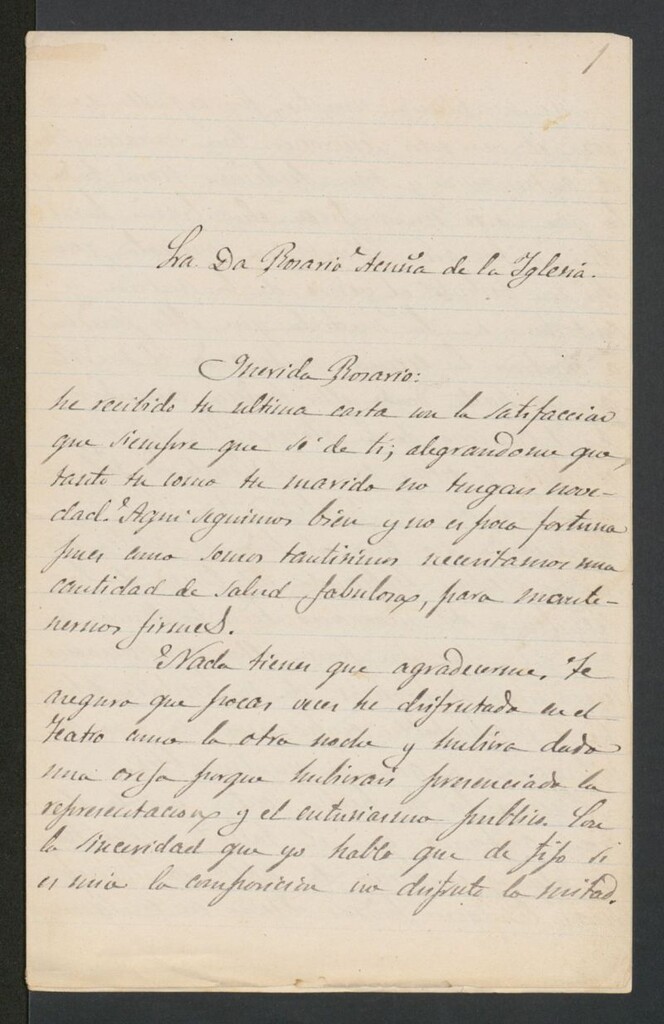 1
Sra Da Rosario Acuña de la Iglesia.
Querida Rosario:
he recibido tu ultima carta con la satisfaccion
que siempre que sé de ti; alegrandome que,
tanto tu como tu marido no tengais nove-
dad. Aqui seguimos bien y no es poca fortuna
pues como somos tantisimos necesitamos una
cantidad de salud fabulosa, para mante-
nernos firmes.
Nada tienes que agradecerme. Te
aseguro que pocas veces he disfrutado en el
Teatro como la otra noche y hubiera dado
una oreja porque hubierais presenciado la
representacion y el entusiasmo publico. Con
la sinceridad que yo hablo que de fijo si
es mia la composicion no disfruto la mitad.